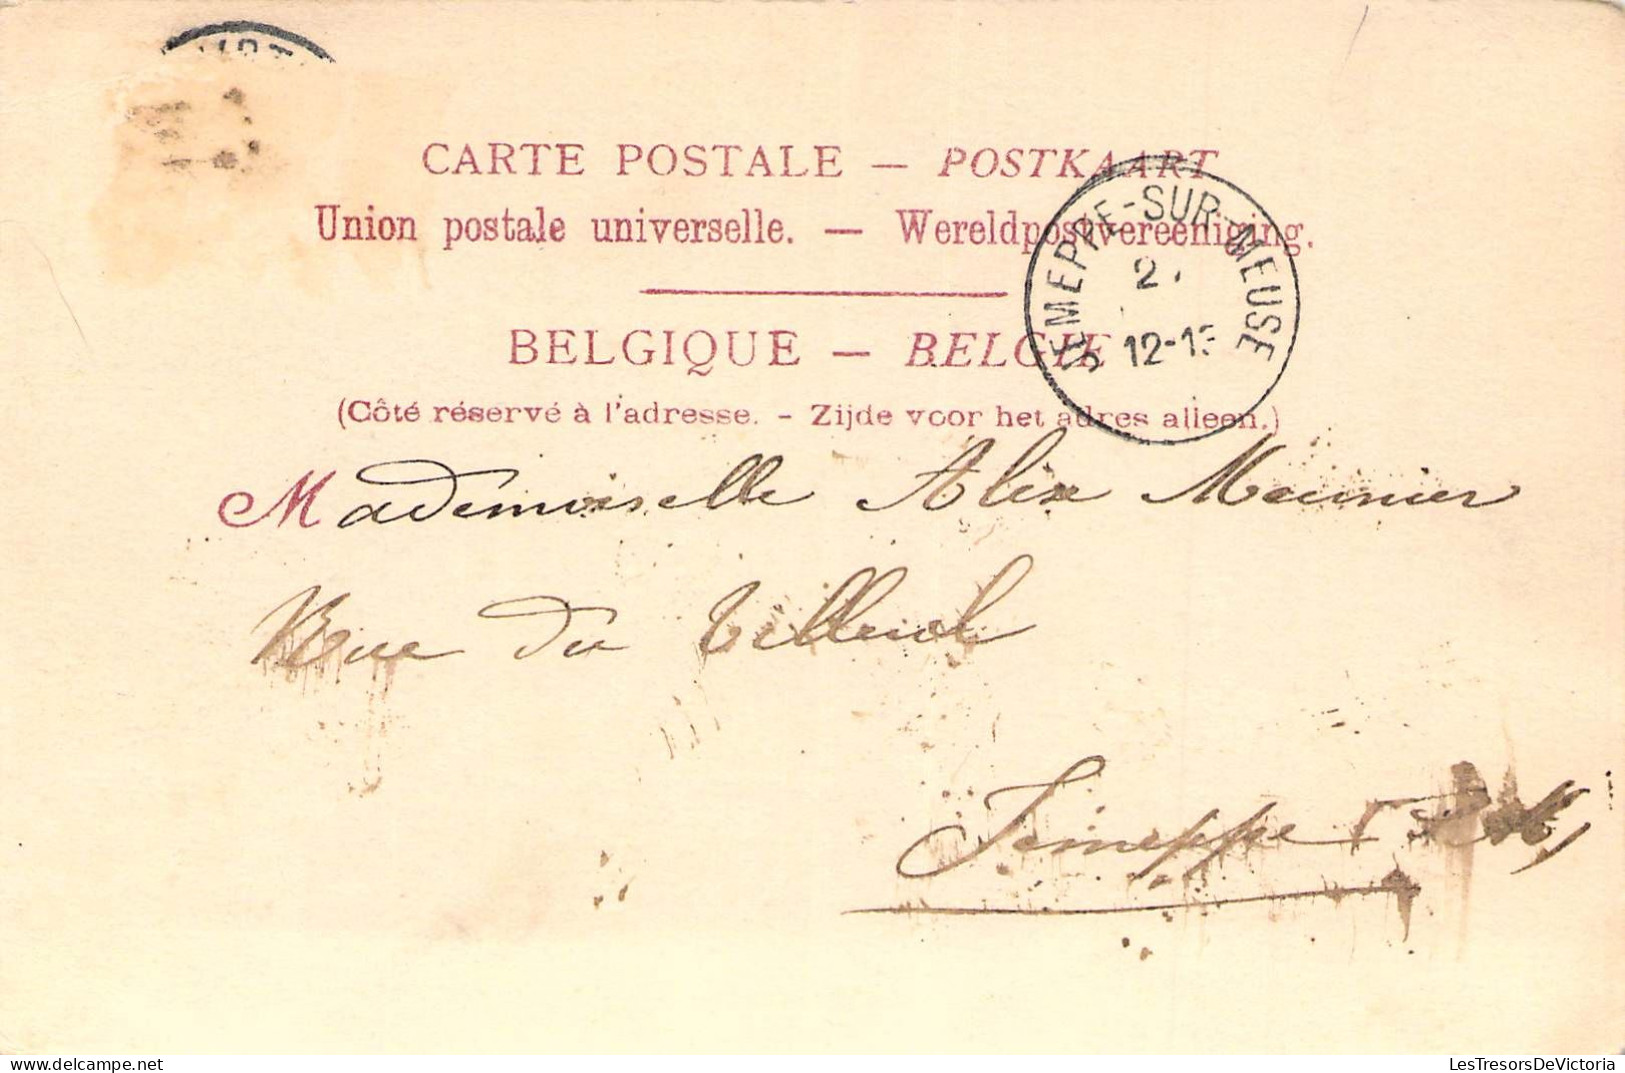 CARTE POSTALE — POSTKAART
Union postale universelle. — Wereldpostvereeniging.
BELGIQUE — BELGIE
(Côté réservé à l'adresse. - Zijde voor het adres alleen.)
JEMEPPE-SUR-MEUSE
2
12-1
Mademoiselle Alix Meunier
Rue du Tilleul
Jemeppe
LesTresorsDeVictoria